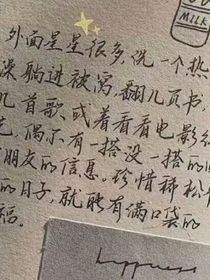 MILK
外面星星很多，洗一个热
澡躺进被窝，翻几页书
几首歌，或者看看电影综
艺。偶尔有一搭没一搭的
朋友的信息。珍惜稀松
的日子，就能有满口袋的
福。
happiness